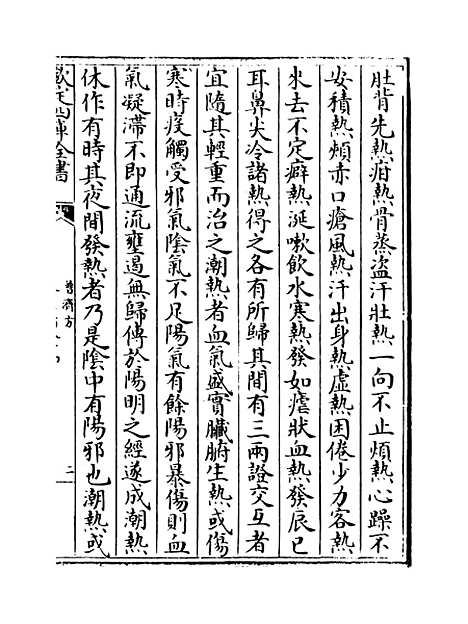 肚背先熱疳熱骨蒸盜汗壯熱一向不止煩熱心躁不
安積熱頰赤口瘡風熱汗出身熱虛熱困倦少力客熱
來去不定癖熱涎嗽飲水寒熱發如瘧狀血熱發辰已
耳鼻尖冷諸熱得之各有所歸其間有三兩證交互者
宜隨其輕重而治之潮熱者血氣盛實臟腑生熱或傷
寒時疫觸受邪氣陰氣不足陽氣有餘陽邪暴傷則血
氣凝滯不即通流壅遏無歸傳於陽明之經遂成潮熱
休作有時其夜間發熱者乃是陰中有陽邪也潮熱或
欽定四庫全書
普濟方
二